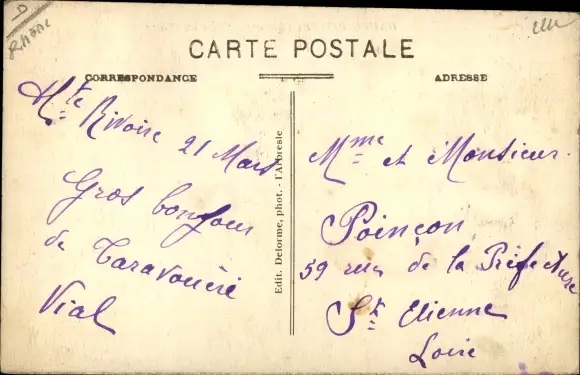 D
Rhône
CARTE POSTALE
CORRESPONDANCE
ADRESSE
Hte Rivoire 21 Mars
Gros bonjour
de
Vial
Edit. Delorme, phot. - l'Arbresle
Mme et Monsieur
Poinçon
59 rue de la Préfecture
St Etienne
Loire